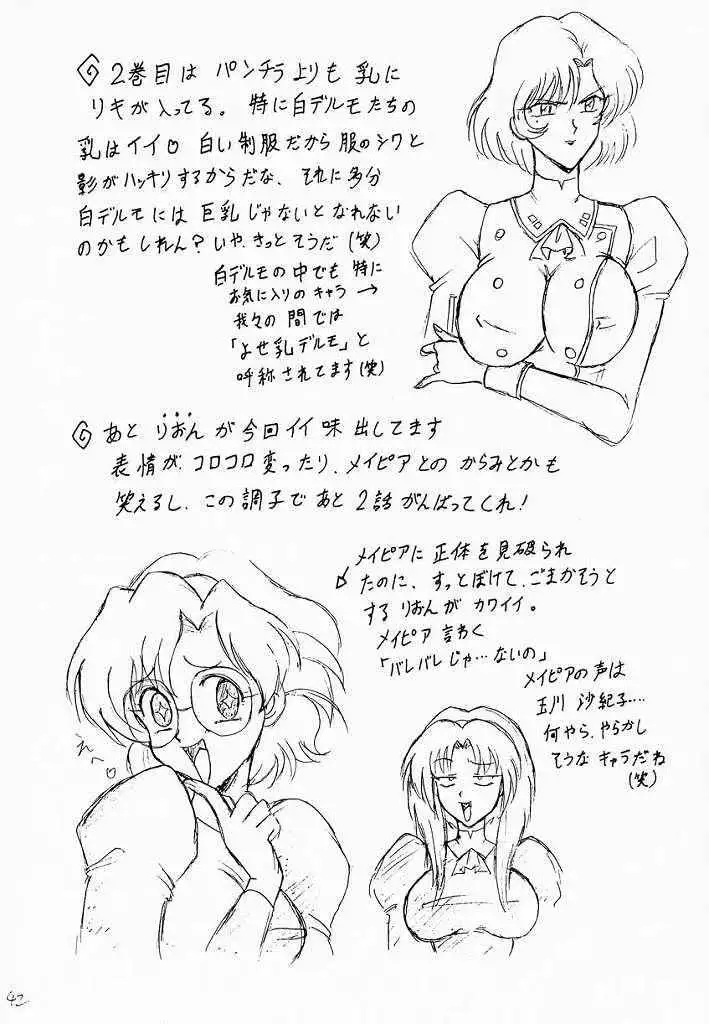 2巻目は パンチラよりも 乳に
リキが入ってる。 特に白デルモたちの
乳はイイ。 白い制服だから服のシワと
影がハッキリするからだな、それに多分
白デルモには 巨乳じゃないとなれない
のかもしれん?いや、きっとそうだ(笑)
白デルモの中でも 特に
お気に入りの キャラ →
我々の 間では
「よせ乳デルモ」と
呼称されてます(笑)
あと りおんが今回イイ味出してます
表情が、コロコロ変ったり、メイピアとの からみとかも
笑えるし、この調子であと2話がんばってくれ!
メイピアに 正体を見破られ
たのに、すっとぼけて、ごまかそうと
する りおんが カワイイ。
メイピア 言わく
「バレバレじゃ…ないの」
メイピアの声は
玉川 沙紀子....
何やら、やらかし
そうな キャラだね
(笑)
えへ。
42